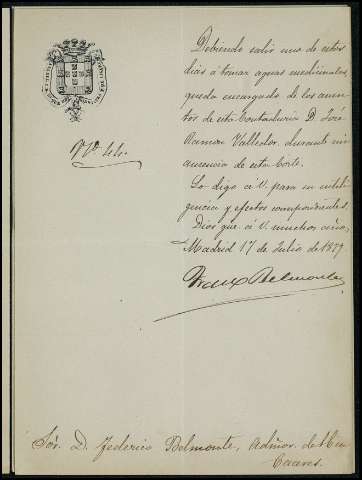 Debiendo salir uno de estos
dias á tomar aguas medicinales,
queda encargado de los asun-
tos de esta Contaduria D. José
Ramon Valledor, durante mi
ausencia de esta Corte.
Lo digo á V. para su inteli-
gencia y efectos correspondientes.
Dios gue á V. muchos años,
Madrid 17 de Julio de 1879
Belmonte
Sór. D. Federico Belmonte, Admor. de
Cáceres.